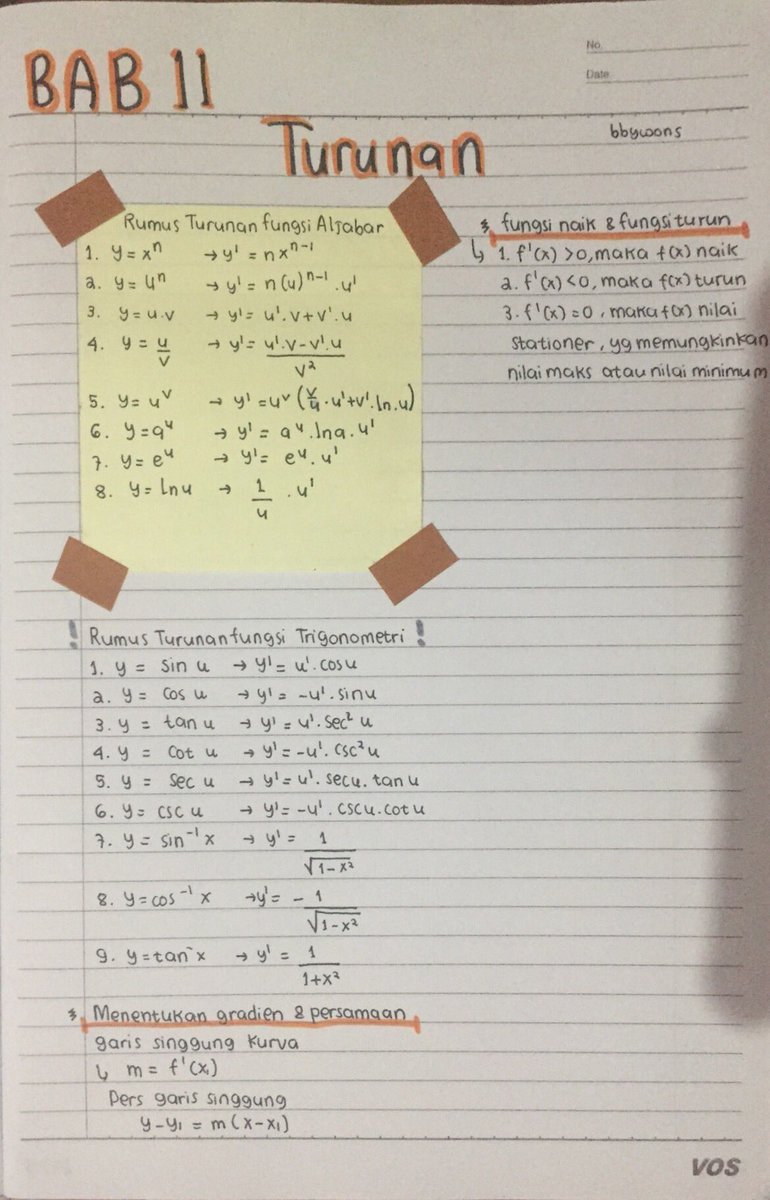 No.
Date
BAB 11
Turunan
bbywons
Rumus Turunan fungsi Aljabar
1. y = xⁿ → y' = nxⁿ⁻¹
2. y = uⁿ → y' = n(u)ⁿ⁻¹ . u'
3. y = u.v → y' = u'.v + v'.u
4. y = u/v → y' = u'.v - v'.u / v²
5. y = uᵛ → y' = uᵛ (v/u . u' + v'. ln.u)
6. y = aᵘ → y' = aᵘ . lna . u'
7. y = eᵘ → y' = eᵘ . u'
8. y = ln u → 1/u . u'
fungsi naik & fungsi turun
↳ 1. f'(x) > 0, maka f(x) naik
2. f'(x) < 0, maka f(x) turun
3. f'(x) = 0, maka f(x) nilai
stationer, yg memungkinkan
nilai maks atau nilai minimum
! Rumus Turunan fungsi Trigonometri !
1. y = sin u → y' = u'. cos u
2. y = cos u → y' = -u'. sin u
3. y = tan u → y' = u'. sec² u
4. y = cot u → y' = -u'. csc² u
5. y = sec u → y' = u'. sec u. tan u
6. y = csc u → y' = -u'. csc u. cot u
7. y = sin⁻¹ x → y' = 1/√(1-x²)
8. y = cos⁻¹ x → y' = - 1/√(1-x²)
9. y = tan⁻ x → y' = 1/1+x²
Menentukan gradien & persamaan
garis singgung kurva
↳ m = f'(x₁)
Pers garis singgung
y - y₁ = m (x - x₁)
VOS